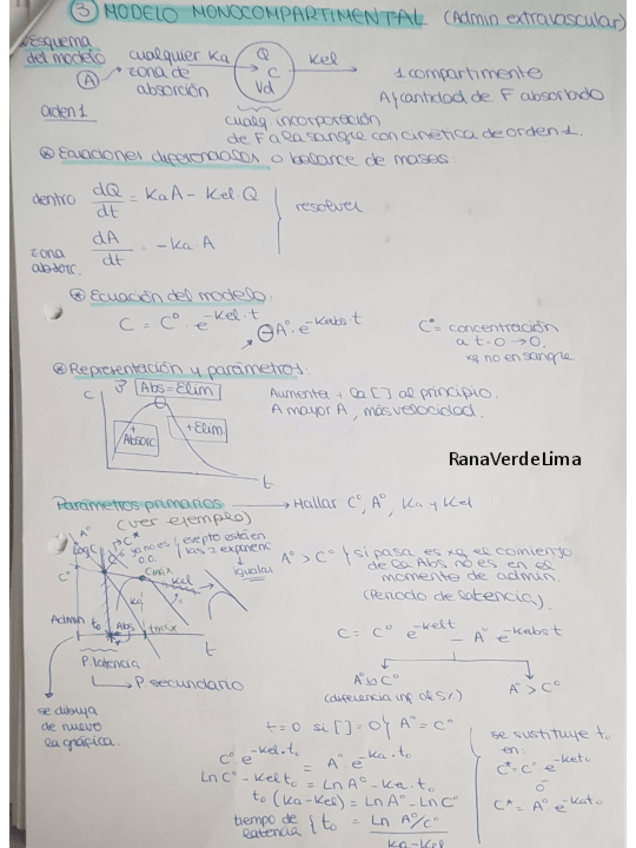 ③ MODELO MONOCOMPARTIMENTAL (Admin extravascular)
Esquema
del modelo
Orden 1
A cualquier Ka
zona de
absorción
Q
C
Vd
Kel
1 compartimento
A y cantidad de F absorbado
cualq. incorporación
de F a la sangre con cinética de orden 1.
Ecuaciones diferenciales o balance de masas:
dentro dQ/dt = KaA - Kel Q
zona
absorc. dA/dt = -Ka · A
resolver
Ecuación del modelo:
C = C° · e^-Kel·t ⊖ A° · e^-Kabs·t
C° = concentración
a t=0 → 0.
xq no en sangre
Representación y parámetros:
C
Abs = Elim
+ Absorc
+ Elim
t
Aumenta + la [ ] al principio.
A mayor A, más velocidad.
RanaVerdeLima
Parámetros primarios → Hallar C°, A°, Ka y Kel
(ver ejemplo)
A°
Log C
C*
ese pto está en
las 2 exponenc
igualar
C°
Cmáx
Kel
Ka
Admin
t₀
Abs
tmáx
t
P. latencia
P. secundario
se dibuja
de nuevo
la gráfica.
A° > C° } si pasa es xq el comienzo
de la Abs no es en el
momento de admin.
(Periodo de latencia).
C = C° e^-kelt - A° e^-kabst
A° ≅ C°
(diferencia inf. al 5%)
A° > C°
t=0 si [ ] = 0 } A° = C°
C° e^-Kel·t₀ = A° e^-Ka·t₀
Ln C° - Kel t₀ = Ln A° - Ka · t₀
t₀ (Ka - Kel) = Ln A° - Ln C°
tiempo de
latencia { t₀ = Ln A°/C° / Ka - Kel
se sustituye t₀
en:
C* = C° e^-ket₀
o
C* = A° e^-kat₀